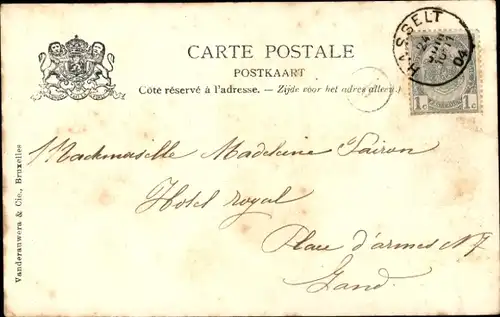 CARTE POSTALE
POSTKAART
Côté réservé à l'adresse. — Zijde voor het adres alleen.
HASSELT
04
1c 1c
Mademoiselle Madeleine
Hotel royal
Place d'armes N 7
Gand.
Vanderauwera & Cie., Bruxelles